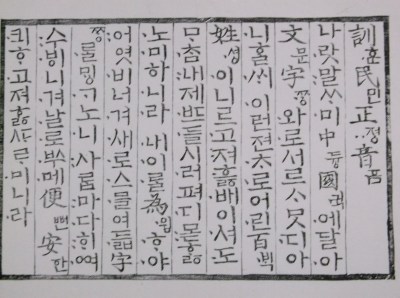 訓훈民민正정音음
나랏말ᄊᆞ미中듕國귁에달아
文문字ᄍᆞᆼ와로서르ᄉᆞᄆᆞᆺ디아
니ᄒᆞᆯᄊᆡ이런젼ᄎᆞ로어린百ᄇᆡᆨ
姓셩이니르고져ᄒᆞᇙ배이셔도
ᄆᆞᄎᆞᆷ내제ᄠᅳ들시러펴디몯ᄒᆞᇙ
노미하니라내이ᄅᆞᆯ為윙ᄒᆞ야
어엿비너겨새로스믈여듧字
ᄍᆞᆼᄅᆞᆯᄆᆡᇰᄀᆞ노니사ᄅᆞᆷ마다ᄒᆡᅇᅧ
수ᄫᅵ니겨날로ᄡᅮ메便뼌安한
킈ᄒᆞ고져ᄒᆞᇙᄯᆞᄅᆞ미니라